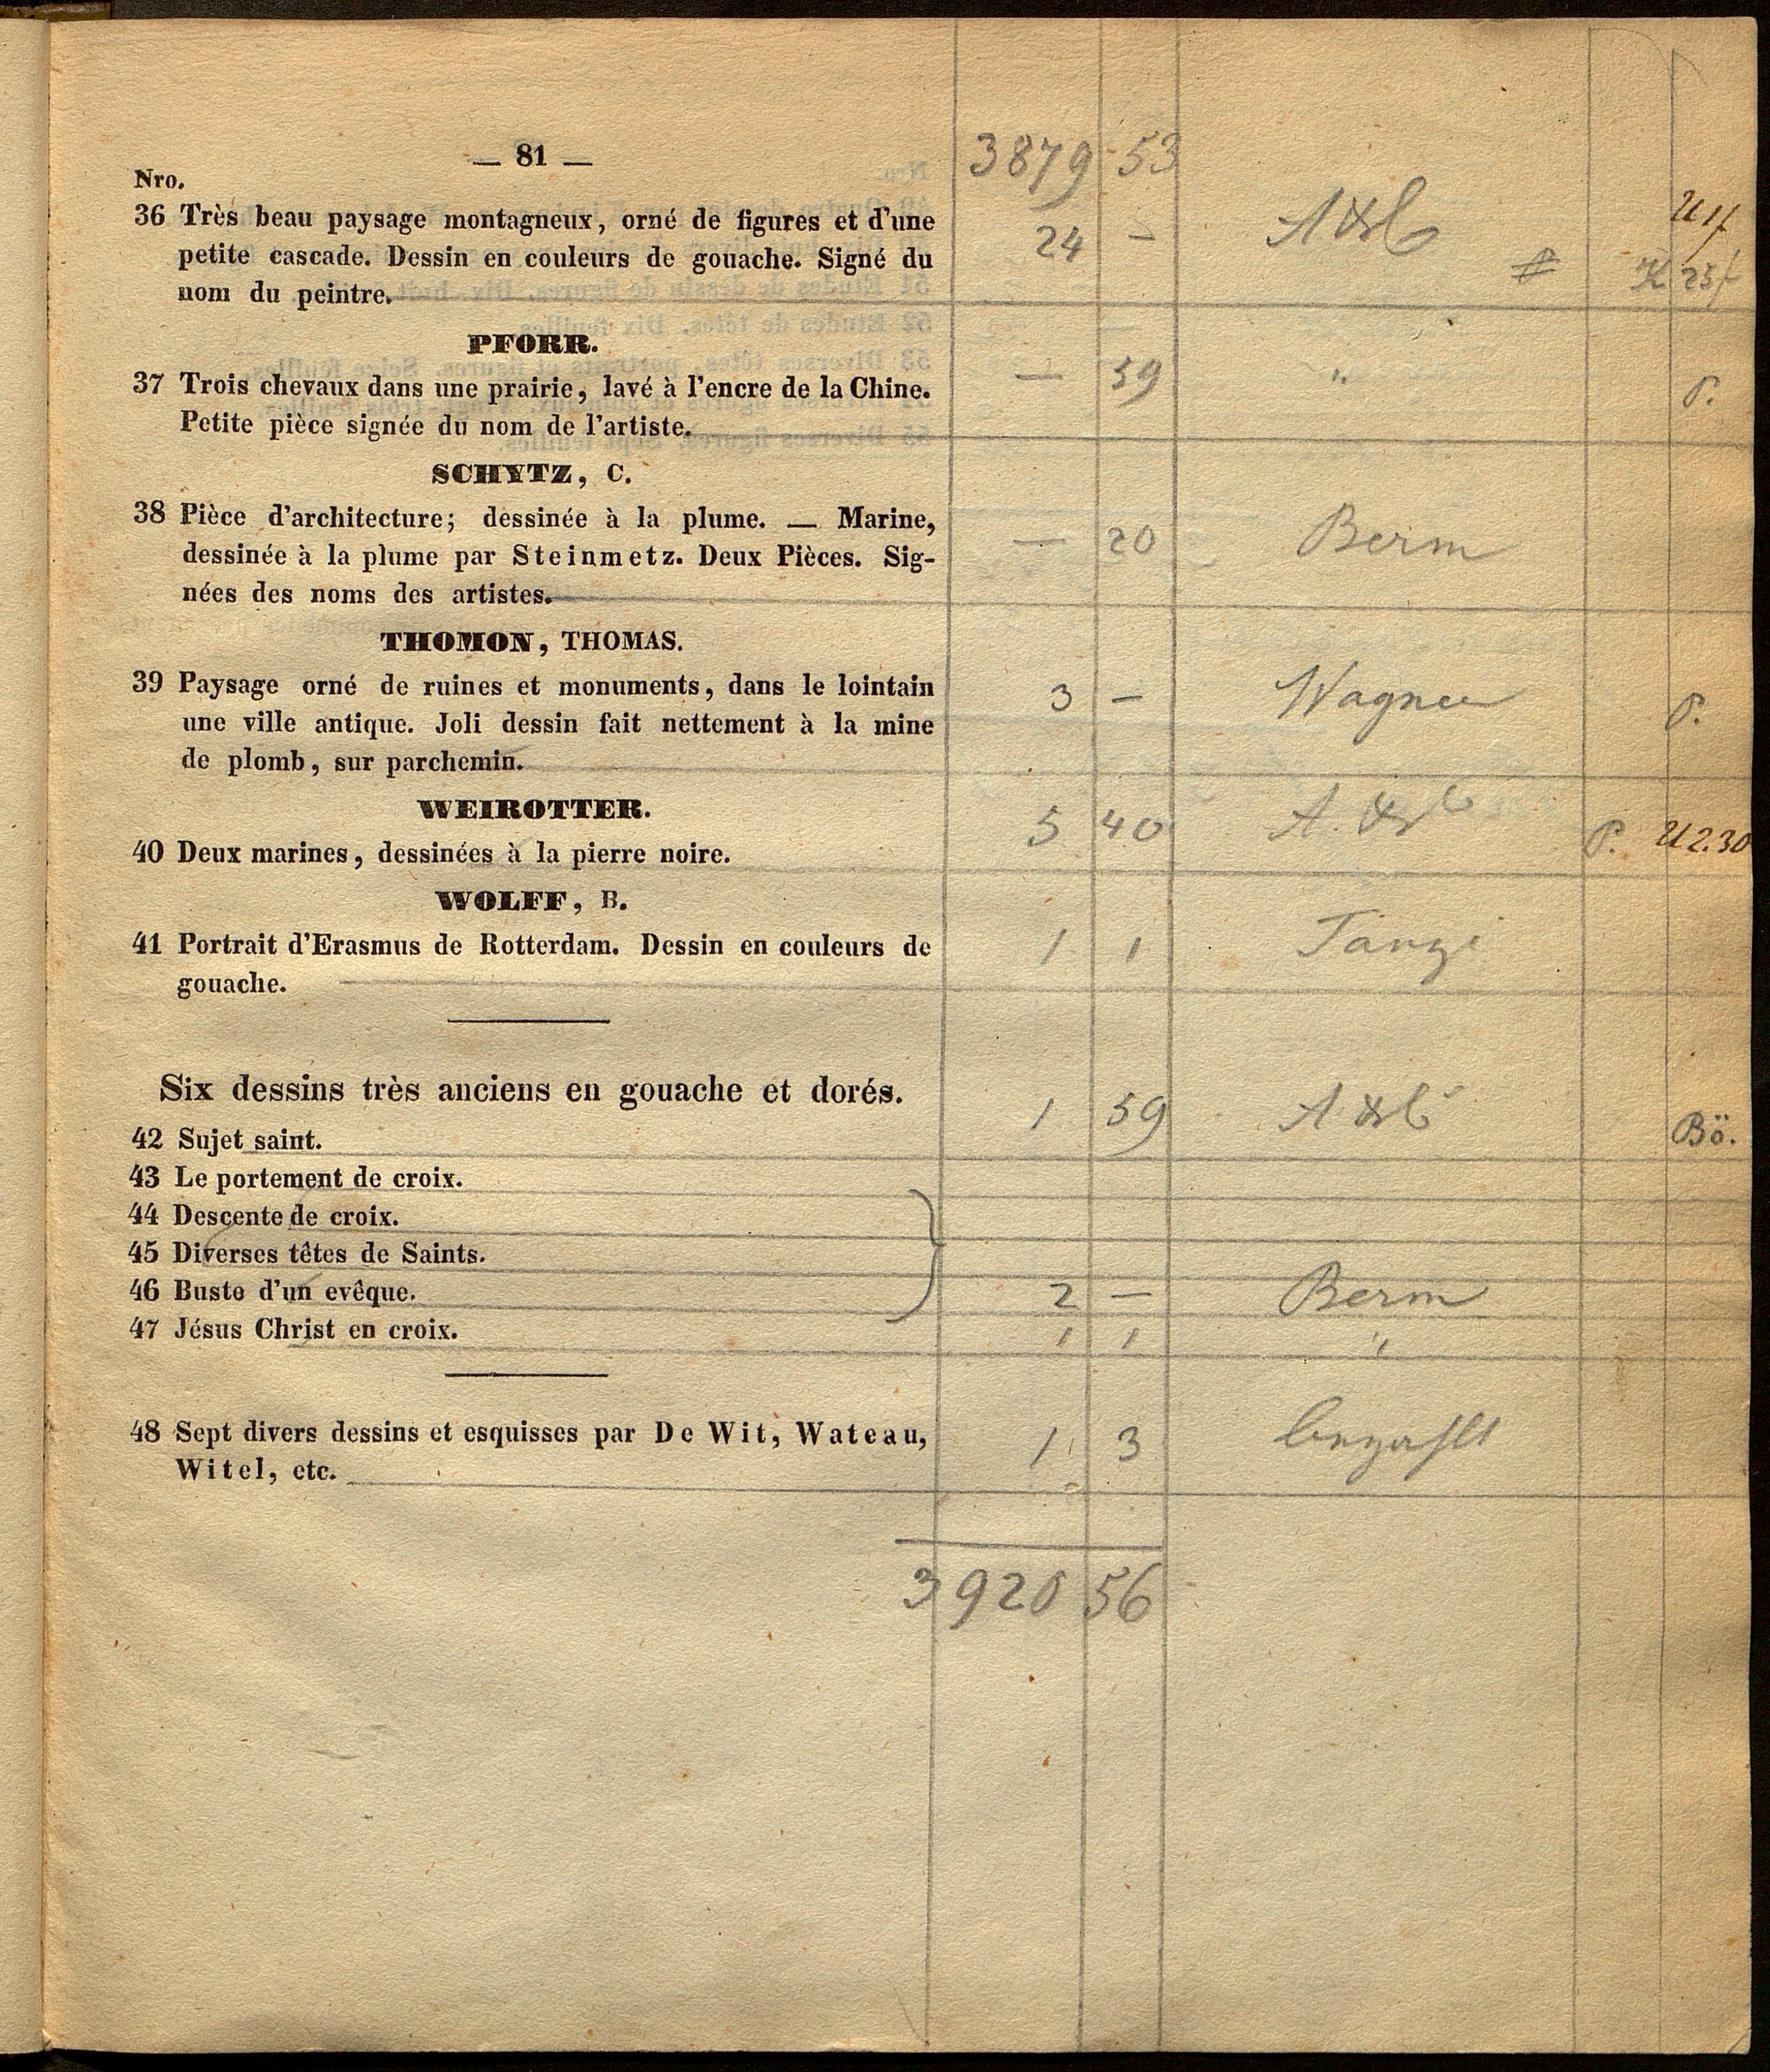 — 81 —
3879 53
Nro.
36 Très beau paysage montagneux, orné de figures et d'une
petite cascade. Dessin en couleurs de gouache. Signé du
nom du peintre.
24 —
K 25f
PFORR.
37 Trois chevaux dans une prairie, lavé à l'encre de la Chine.
Petite pièce signée du nom de l'artiste.
— 59 " P.
SCHYTZ, C.
38 Pièce d'architecture; dessinée à la plume. — Marine,
dessinée à la plume par Steinmetz. Deux Pièces. Sig-
nées des noms des artistes.
— 20 Berm
THOMON, THOMAS.
39 Paysage orné de ruines et monuments, dans le lointain
une ville antique. Joli dessin fait nettement à la mine
de plomb, sur parchemin.
3 — Wagner P.
WEIROTTER.
40 Deux marines, dessinées à la pierre noire.
5 40 P. U 2.30
WOLFF, B.
41 Portrait d'Erasmus de Rotterdam. Dessin en couleurs de
gouache.
1 1 Tanzi
Six dessins très anciens en gouache et dorés.
42 Sujet saint.
1 59 Bö.
43 Le portement de croix.
44 Descente de croix.
45 Diverses têtes de Saints.
46 Buste d'un evêque.
2 — Berm
47 Jésus Christ en croix.
1 1 "
48 Sept divers dessins et esquisses par De Wit, Wateau,
Witel, etc.
1 3 bezahlt
3920 56